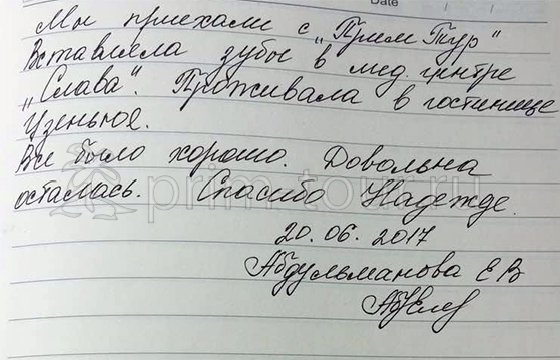 Date
Мы приехали с „Прим Тур"
Вставляла зубы в мед. центре
„Слава". Проживала в гостинице
Узенькое.
Все было хорошо. Довольна
осталась. Спасибо Надежде.
prim-tour.ru
20.06.2017
Абдульманова Е В